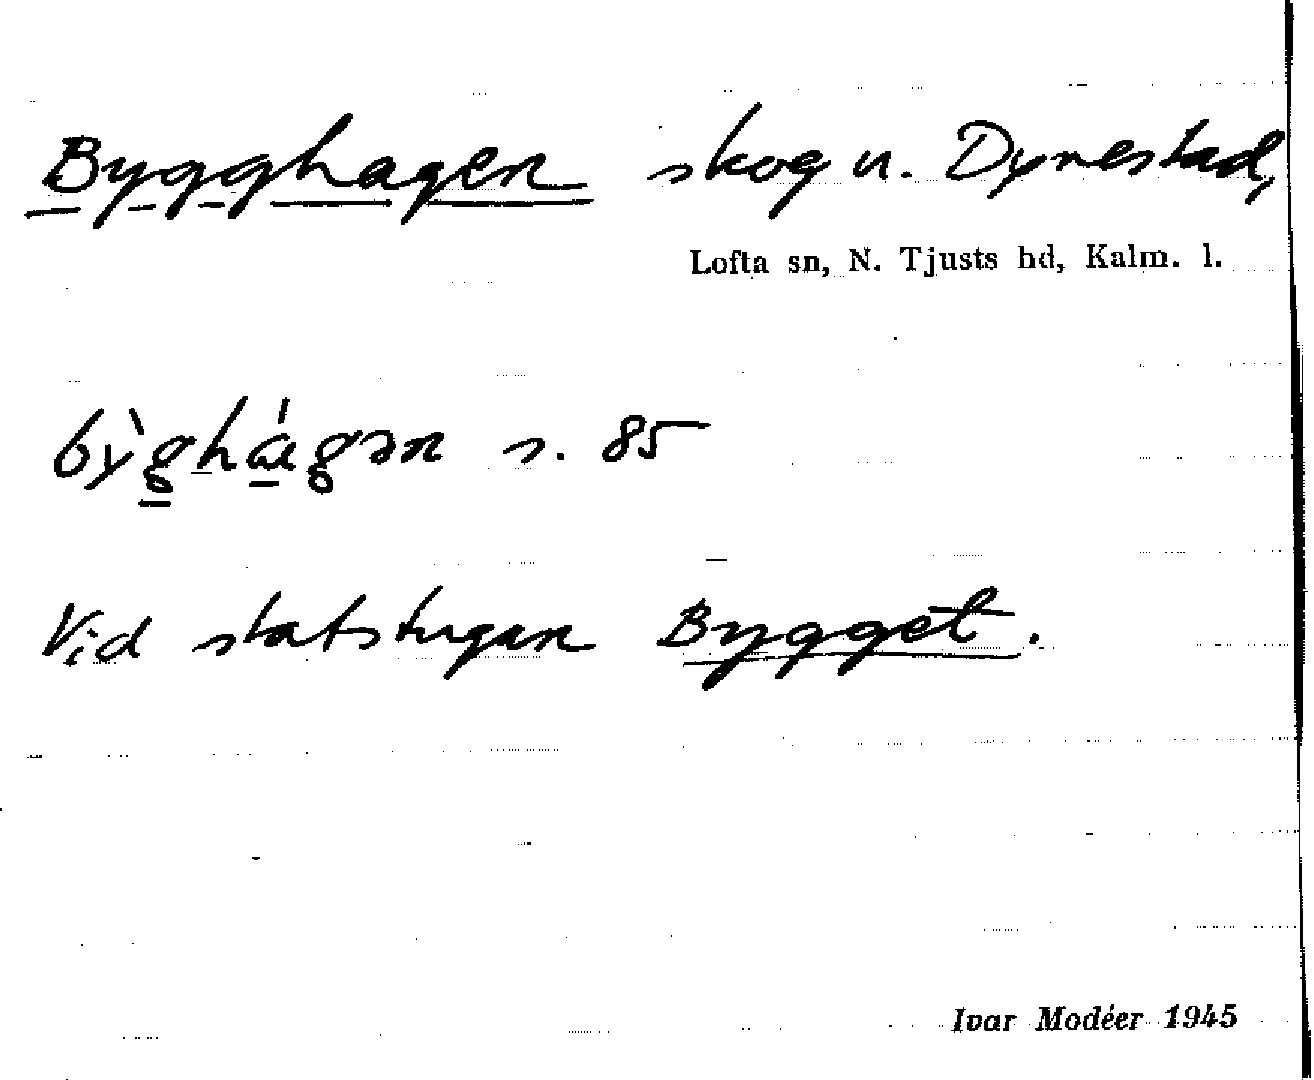 Bygghagen skog u. Dynestad,
Lofta sn, N. Tjusts hd, Kalm. l.
bỳghágən s. 85
Vid statstugan Bygget.
Ivar Modéer 1945